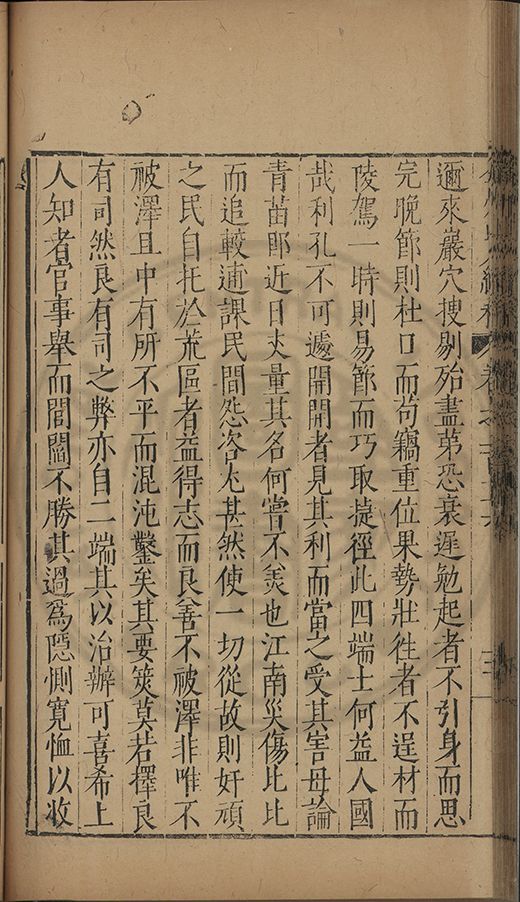 邇來巖穴搜剔殆盡第恐衰遲勉起者不引身而思
完晚節則杜口而苟竊重位果勢壯徃者不逞材而
陵駕一時則易節而巧取捷徑此四端士何益人國
哉利孔不可遽開開者見其利而當之受其害毋論
青苗即近日丈量其名何嘗不羙也江南災傷比比
而追較逋課民間怨咨尤甚然使一切從故則奸頑
之民自托於荒區者益得志而良善不被澤非唯不
被澤且中有所不平而混沌鑿矣其要筴莫若擇良
有司然良有司之弊亦自二端其以治辦可喜希上
人知者官事舉而閭閻不勝其過爲隱惻寛恤以收